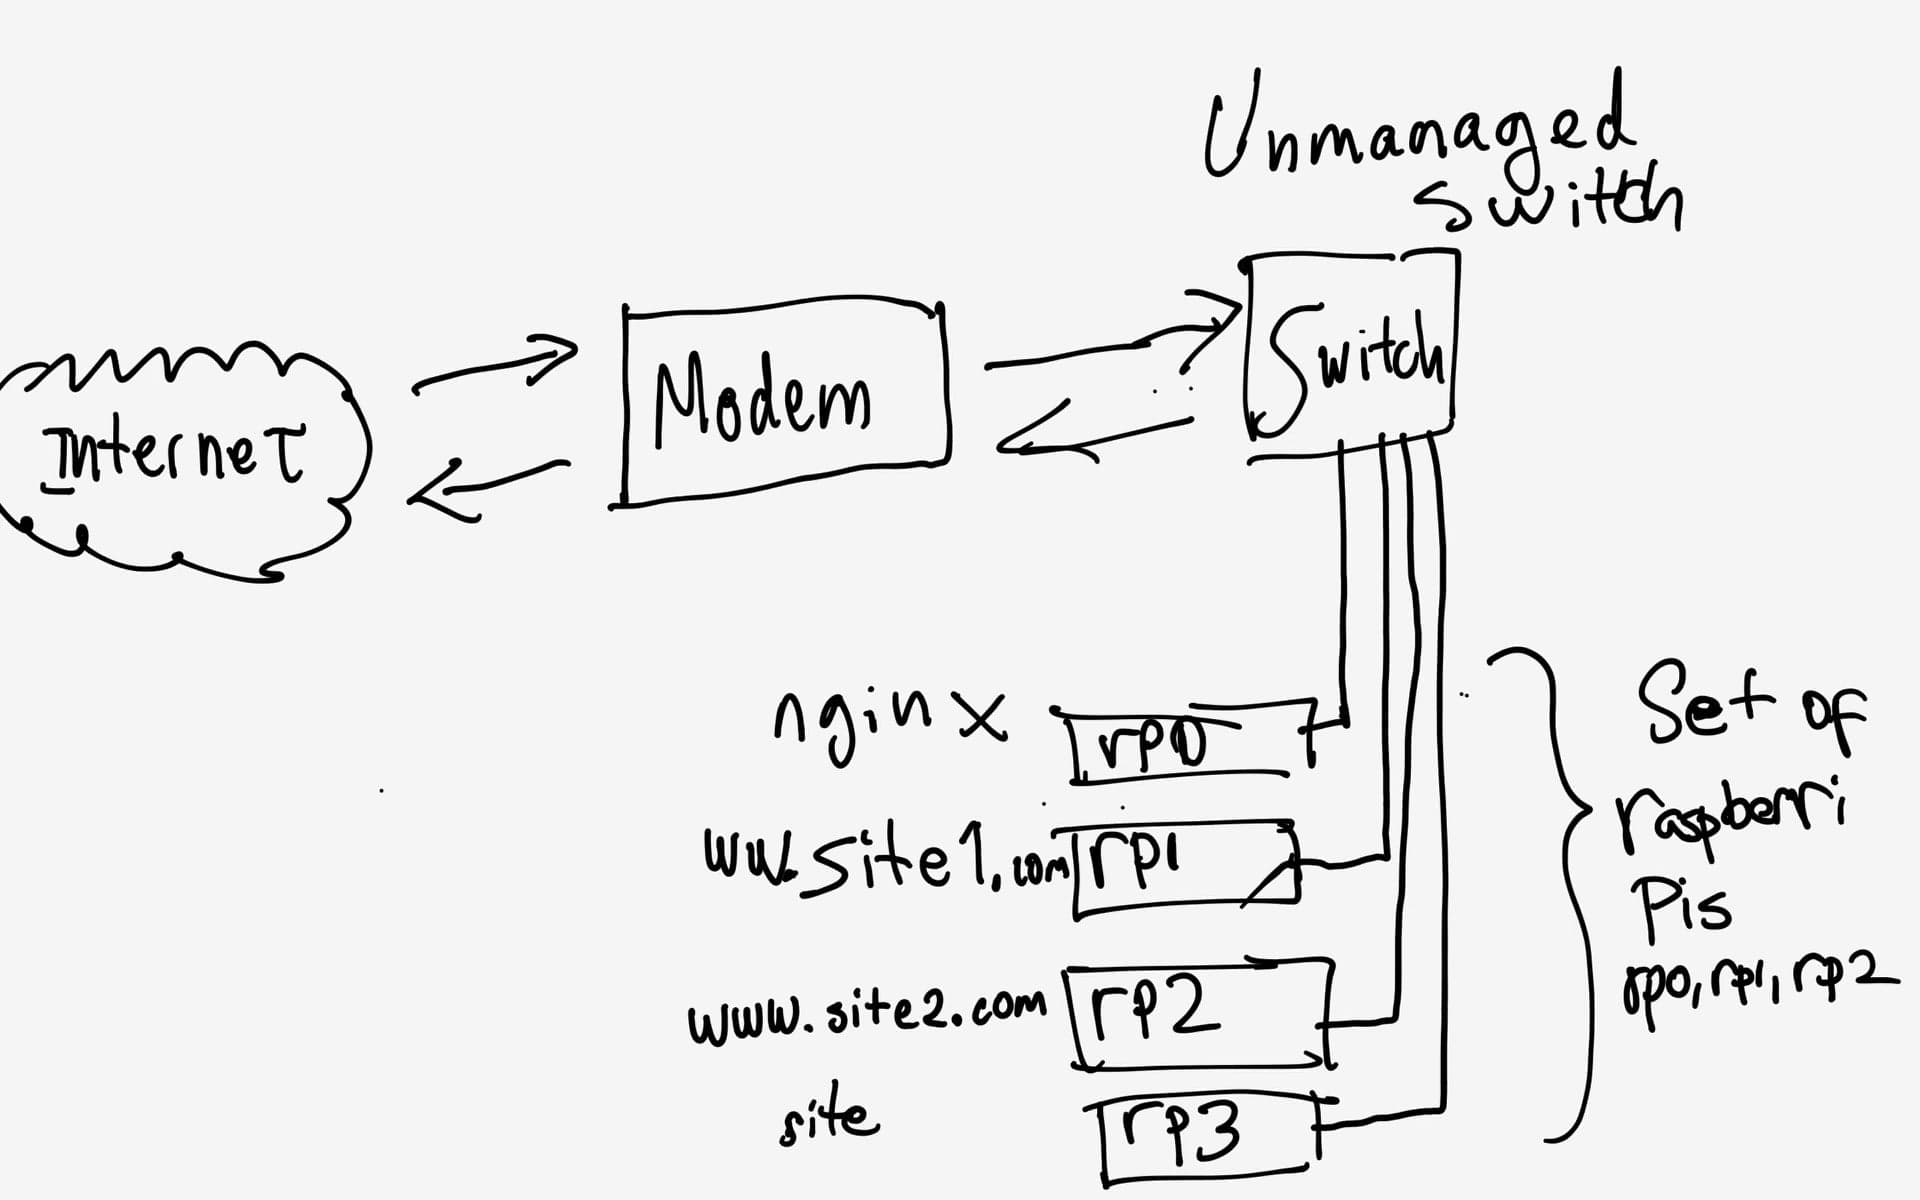 Unmanaged
switch
Internet
Modem
Switch
nginx
rp0
ww.site1.com
rp1
www.site2.com
rp2
site
rp3
Set of
raspberri
Pis
rp0, rp1, rp2